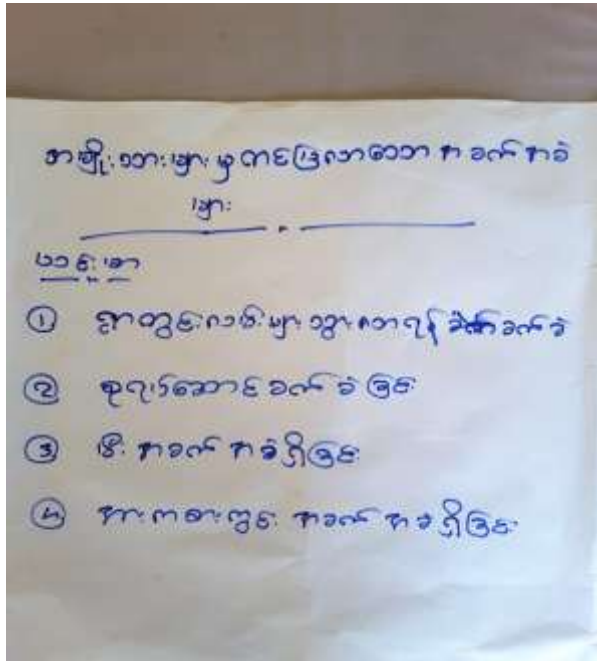 အမျိုးသားများမှ တင်ပြလာသော အခက်အခဲ
များ
ပထမ်းဆာ
① ရွာတွင်းလမ်းများသွားလာရန် ခက်ခဲ
② စုရပ်ဆောင် ခက်ခဲခြင်း
③ မီးအခက်အခဲရှိခြင်း
④ အားကစားကွင်း အခက်အခဲရှိခြင်း